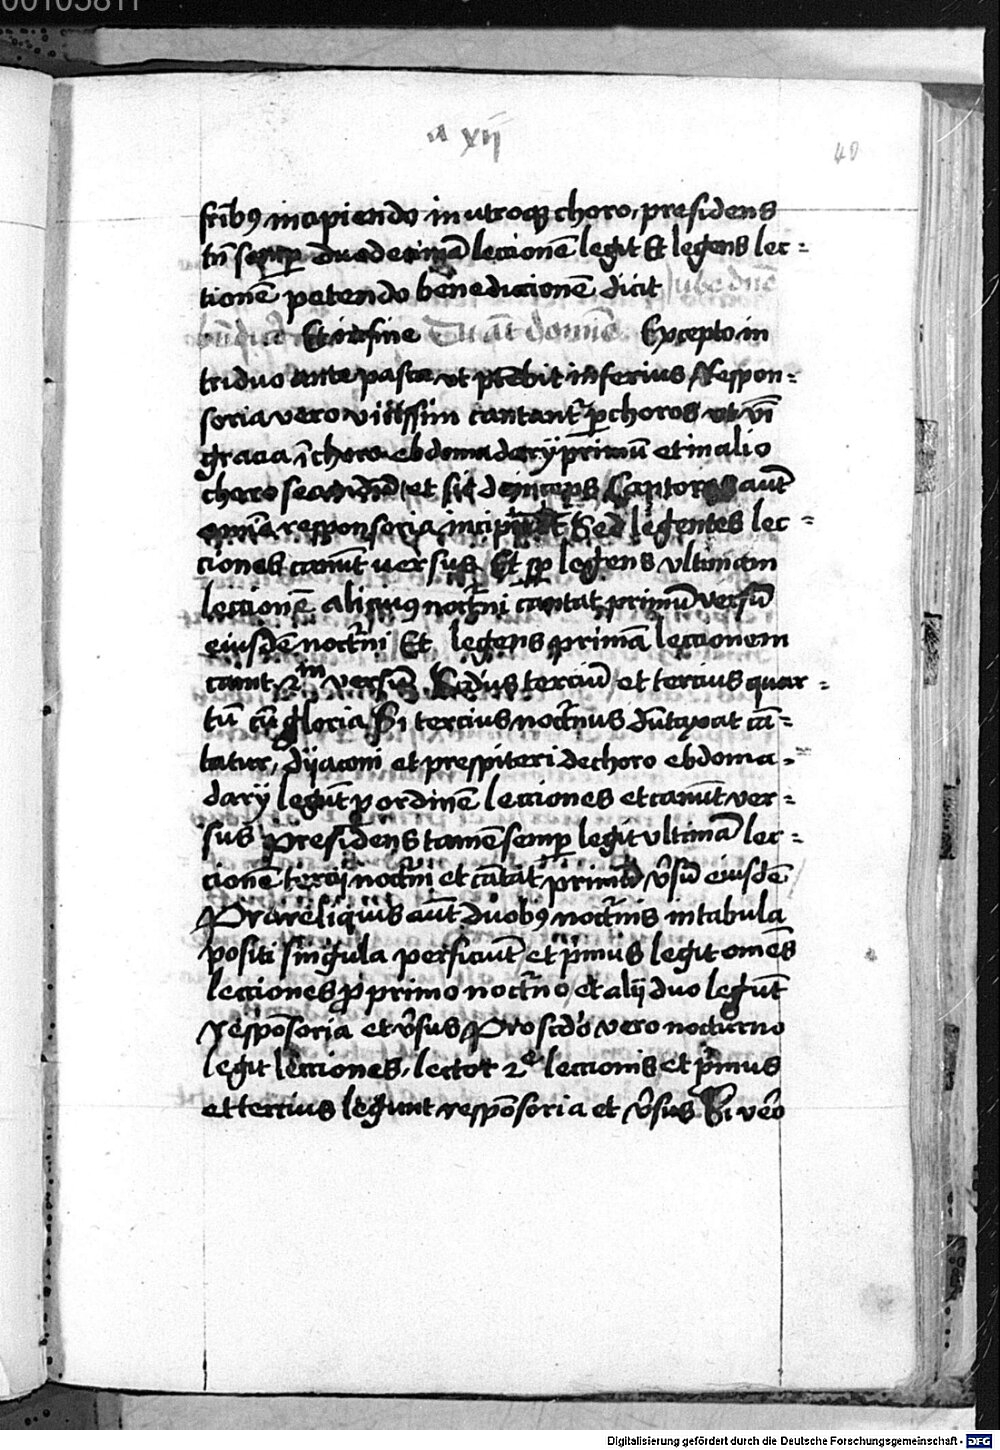 00105811
xij
40
fribꝯ incipiendo in utroqꝫ choro, presidens
tn̄ semꝑ duodecimā leccionē legit Et legens lec-
tionē petendo bēnediccionē dicit Iube dnē
Et in fine Tu aūt domīe Excepto in
triduo ante pasca ut ptꝫbit inferius Respon-
soria vero vicissim cantant᷑ ꝑ choros ut vī
gracia ī choro ebdomadarij primū et in alio
choro secundū et sic deinceps Cantores aūt
omīa responsoria incipiūt Sed legentes lec-
ciones canūt uersus Et sꝑ legens vltimam
leccionē alicuiꝯ noct᷑ni cantat primū versū
eiusdē noct᷑ni Et legens primā leccionem
canit 2m versū. tercius terciū et tercius quar-
tū cū gloria Si tercius noct᷑nus dūtaxat cā-
tatur, dyaconi et prespiteri de choro ebdoma-
darij legūt ꝑ ordinē lecciones et canūt ver-
sus Presidens tamē semꝑ legit vltimā lec-
cionē tercij noct᷑ni et cātat primū v̄sū eiusdē
Pro reliquis aūt duobꝯ noct᷑nis in tabula
positi singula perficiūt et p̄mus legit omēs
lecciones ꝓ primo noct᷑no et alij duo legūt
respōsoria et v̄sus Pro scdo vero nocturno
legit lecciones, lector 2e leccionis et p̄mus
et tercius legunt respōsoria et v̄sus Si vero
Digitalisierung gefördert durch die Deutsche Forschungsgemeinschaft - DFG